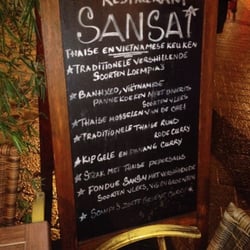 RESTAURANT
SANSAI
THAISE EN VIETNAMESE KEUKEN
★ TRADITIONELE VERSCHILLENDE
SOORTEN LOEMPIA'S
★ BANHXEO, VIETNAMESE
PANNEKOEKEN MET DIVERS
SOORTEN VLEES
★ THAISE MOSSELEN VAN DE CHEF
★ TRADITIONELE THAISE RUND
RODE CURRY
★ KIP GELE EN PANANG CURRY
★ STEAK MET THAISE PEPERSAUS
★ FONDUE SANSAI MET VERSCHILLENDE
SOORTEN VLEES, VIS EN GROENTEN
★ CURRY